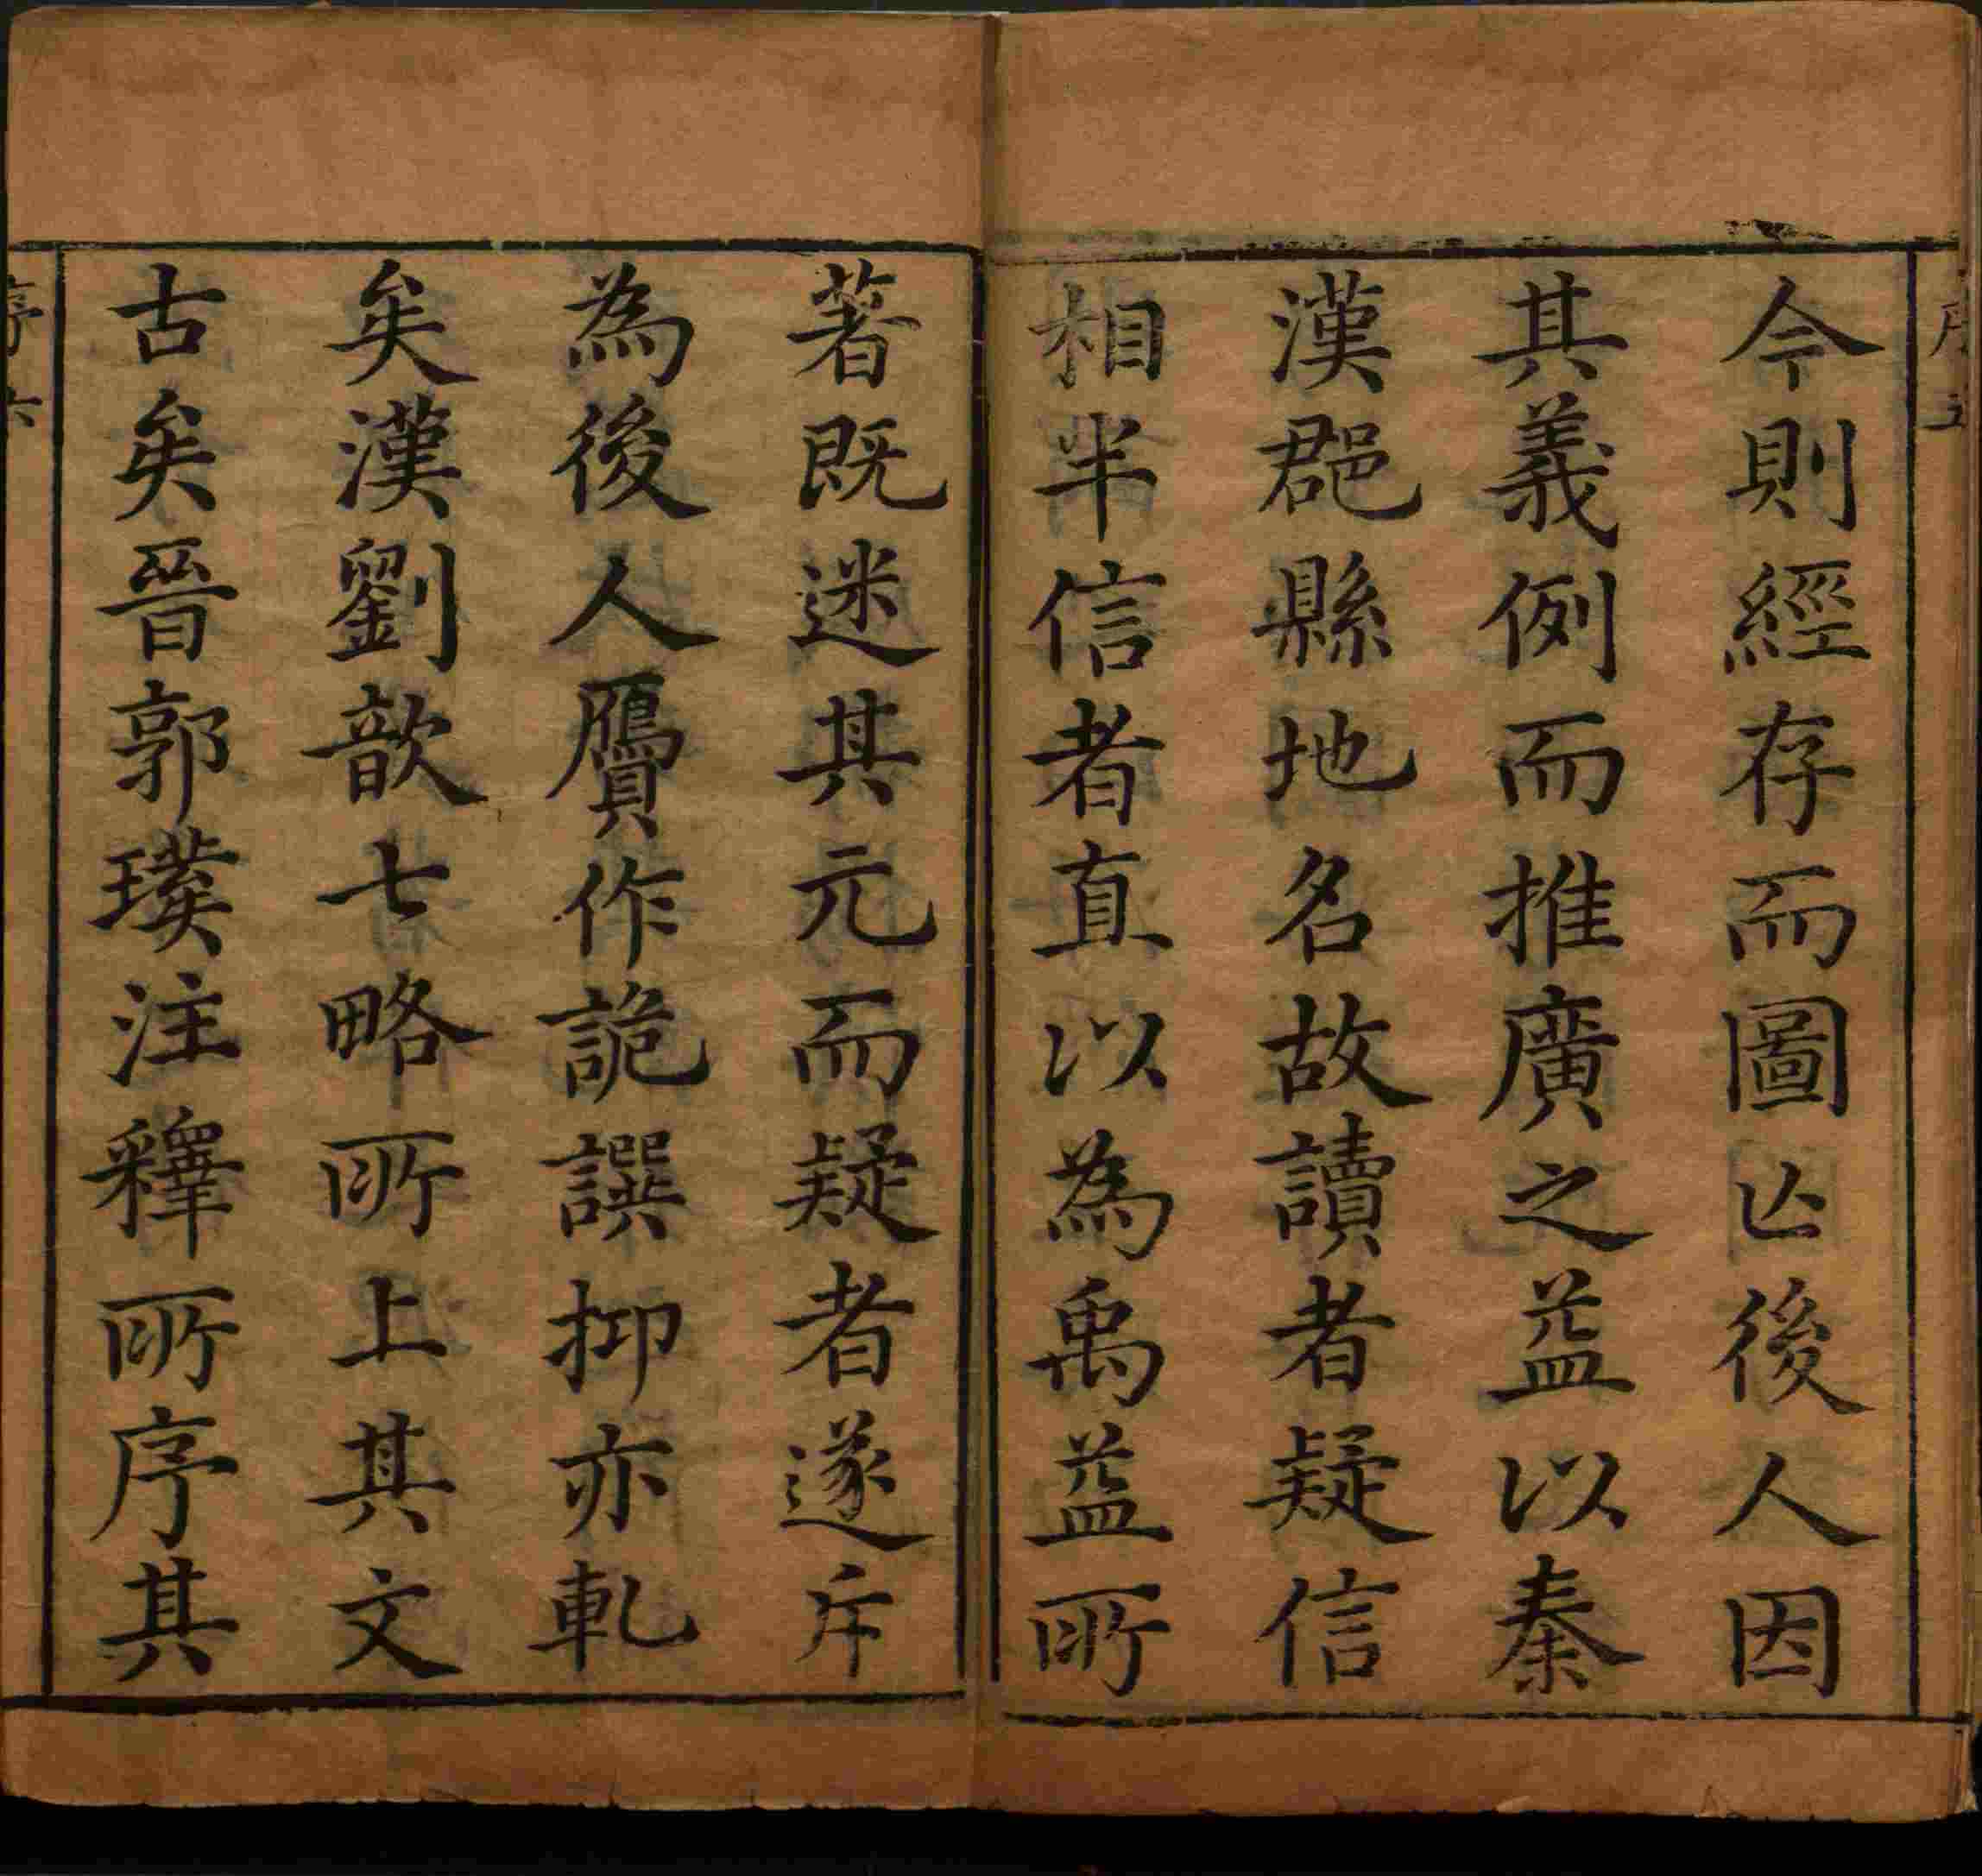 今則經存而圖亾後人因
其義例而推廣之益以秦
漢郡縣地名故讀者疑信
相半信者直以為禹益所
著既迷其元而疑者遂斥
為後人贋作詭譔抑亦軋
矣漢劉歆七略所上其文
古矣晉郭璞注釋所序其
序六